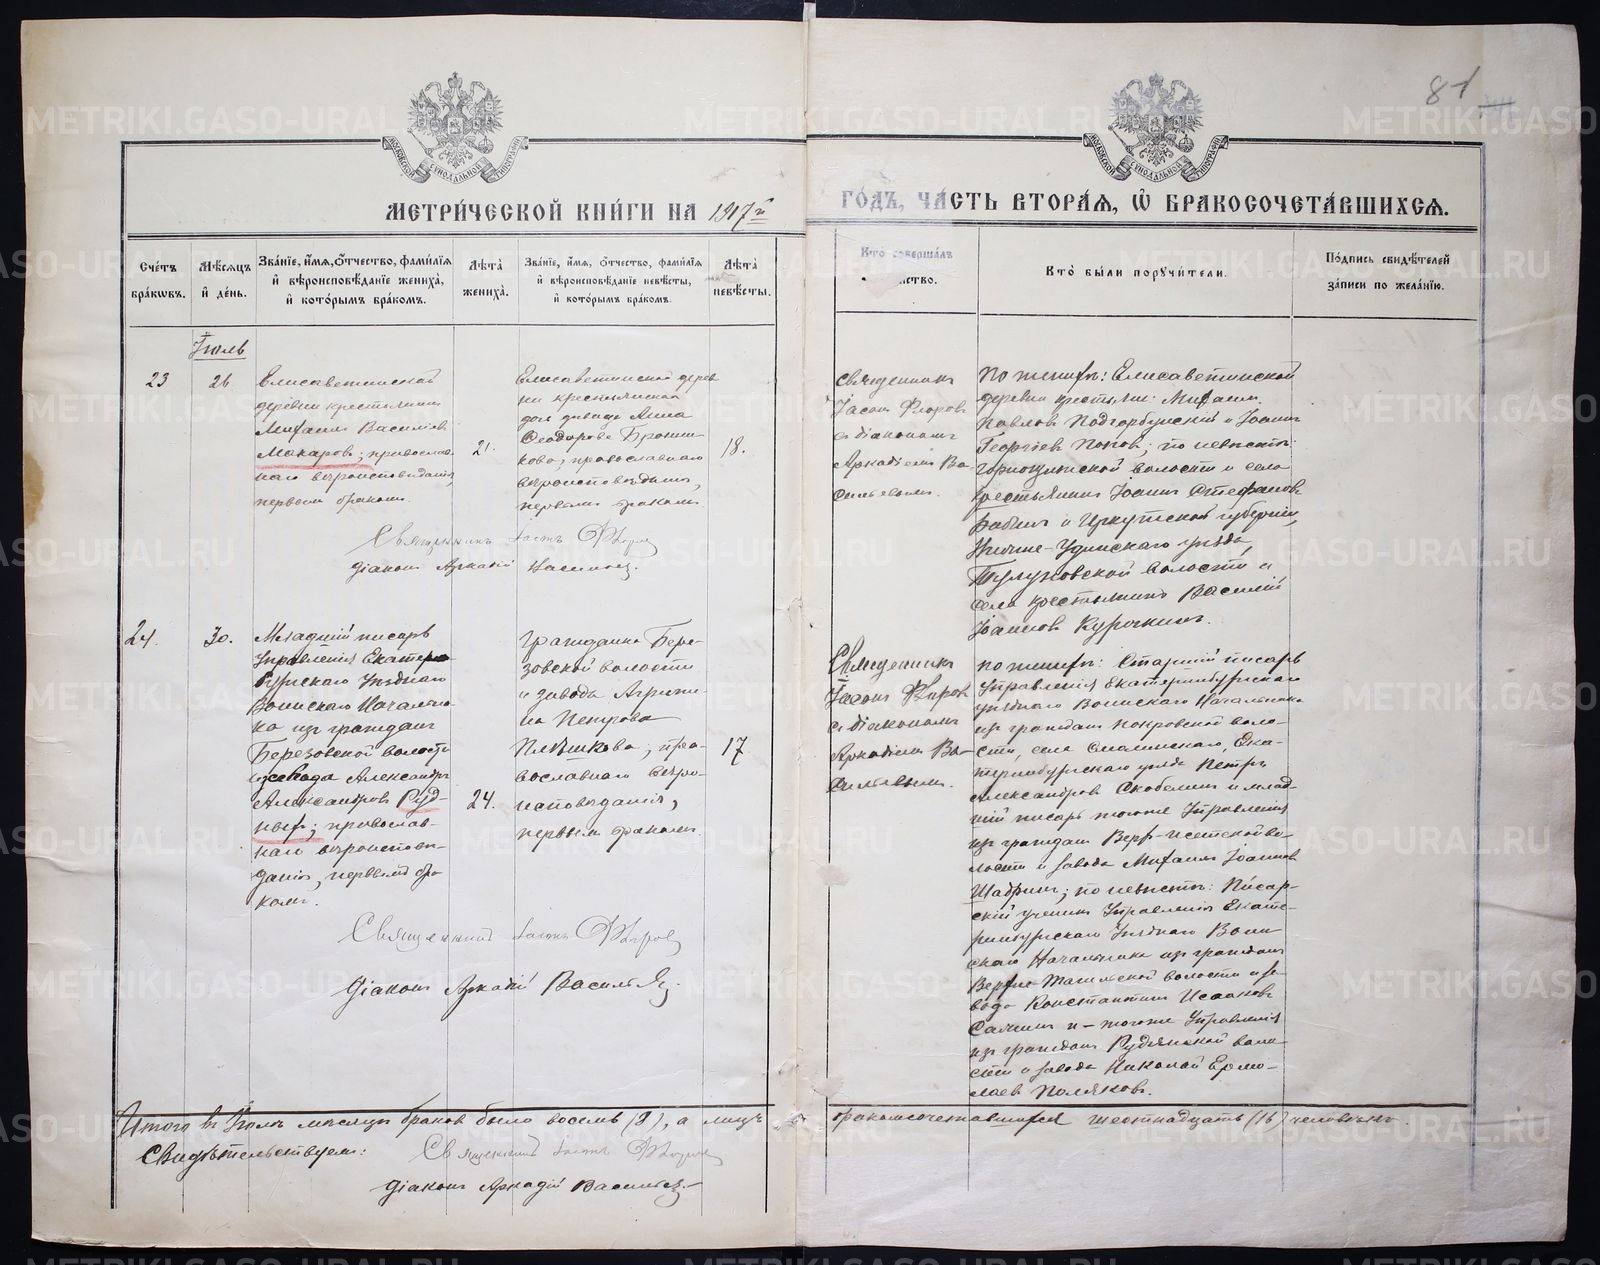 81
МОСКОВСКОЙ СѴНОДАЛЬНОЙ ТИПОГРАФІИ
МОСКОВСКОЙ СѴНОДАЛЬНОЙ ТИПОГРАФІИ
МЕТРИ́ЧЕСКОЙ КНИ́ГИ НА 1917й
ГО́ДЪ, ЧА́СТЬ ВТОРА́Я, Ѡ БРАКОСОЧЕТА́ВШИХСЯ.
Сче́тъ бра́кѡвъ.
Мѣ́сяцъ и де́нь.
Зва́ніе, и́мя, о́тчество, фами́лія и вѣроисповѣ́даніе жениха́, и кото́рымъ бра́комъ.
Лѣта̀ жениха̀.
Зва́ніе, и́мя, о́тчество, фами́лія и вѣроисповѣ́даніе невѣ́сты, и кото́рымъ бра́комъ.
Лѣта̀ невѣ́сты.
Кто̀ соверша́лъ
нство.
Кто̀ бы́ли поручи́тели.
По́дпись свидѣ́телей за́писи по жела́нію.
Іюль
23
26
Елисаветинской
деревни крестьянинъ
Михаилъ Васильевъ
Макаровъ; православ-
наго вѣроисповѣданія,
первымъ бракомъ.
21.
Елисаветинской дерев
ни крестьянская
дочь дѣвица Анна
Ѳеодорова
православнаго
вѣроисповѣданія,
первымъ бракомъ.
18.
Священникъ
Іасонъ Фл
съ діакономъ
Аркадіемъ Ва
сильевымъ.
По женихѣ: Елисаветинской
деревни крестьяне: Михаилъ
Павловъ Подгорбунскій и Іоаннъ
Георгіевъ Поповъ; по невѣстѣ:
Горнощитской волости и села
крестьянинъ Іоаннъ Стефановъ
Бабинъ и Иркутской губерніи,
Нижне-Удинскаго уѣзда,
Тулуновской волости и
села крестьянинъ Василій
Іоанновъ Курочкинъ.
Священникъ Іасонъ
діаконъ Аркадій Васильевъ.
24.
30.
Младшій писарь
Управленія Екатерин
бургскаго Уѣзднаго
Воинскаго Начальни
ка изъ гражданъ
Березовской волости
и завода Александръ
Александровъ Руд-
ныхъ; православ-
наго вѣроисповѣ-
данія, первымъ бра
комъ.
24.
гражданка Бере-
зовской волости
и завода Агриппи-
на Петрова
Плѣшкова; пра-
вославнаго вѣро-
исповѣданія,
первымъ бракомъ.
17
Священникъ
Іасонъ
съ діакономъ
Аркадіемъ Ва-
сильевымъ.
по женихѣ: Старшій писарь
Управленія Екатеринбургскаго
уѣзднаго Воинскаго Начальника
изъ гражданъ Покровской воло-
сти, села Смолинскаго, Ека-
теринбургскаго уѣзда Петръ
Александровъ Скобелинъ и млад-
шій писарь тогоже Управленія
изъ гражданъ Верх-Исетской во-
лости и завода Михаилъ Іоанновъ
Шабринъ; по невѣстѣ: Писар-
скій ученикъ Управленія Екате-
ринбургскаго Уѣзднаго Воин
скаго Начальника изъ гражданъ
Верхне-Тагильской волости и за-
вода Константинъ Исааковъ
Салминъ и - тогоже Управленія
изъ гражданъ Рудянской воло-
сти и завода Николай Ермо-
лаевъ Поляковъ.
Священникъ Іасонъ
Діаконъ Аркадій Васильев.
Итого въ Іюлѣ мѣсяцѣ браковъ было восемь (8), а лицъ бракосочетавшихся шестнадцать (16) человѣкъ.
Свидѣтельствуемъ: Священникъ Іасонъ
Діаконъ Аркадій Васильев
METRIKI.GASO-URAL.RU